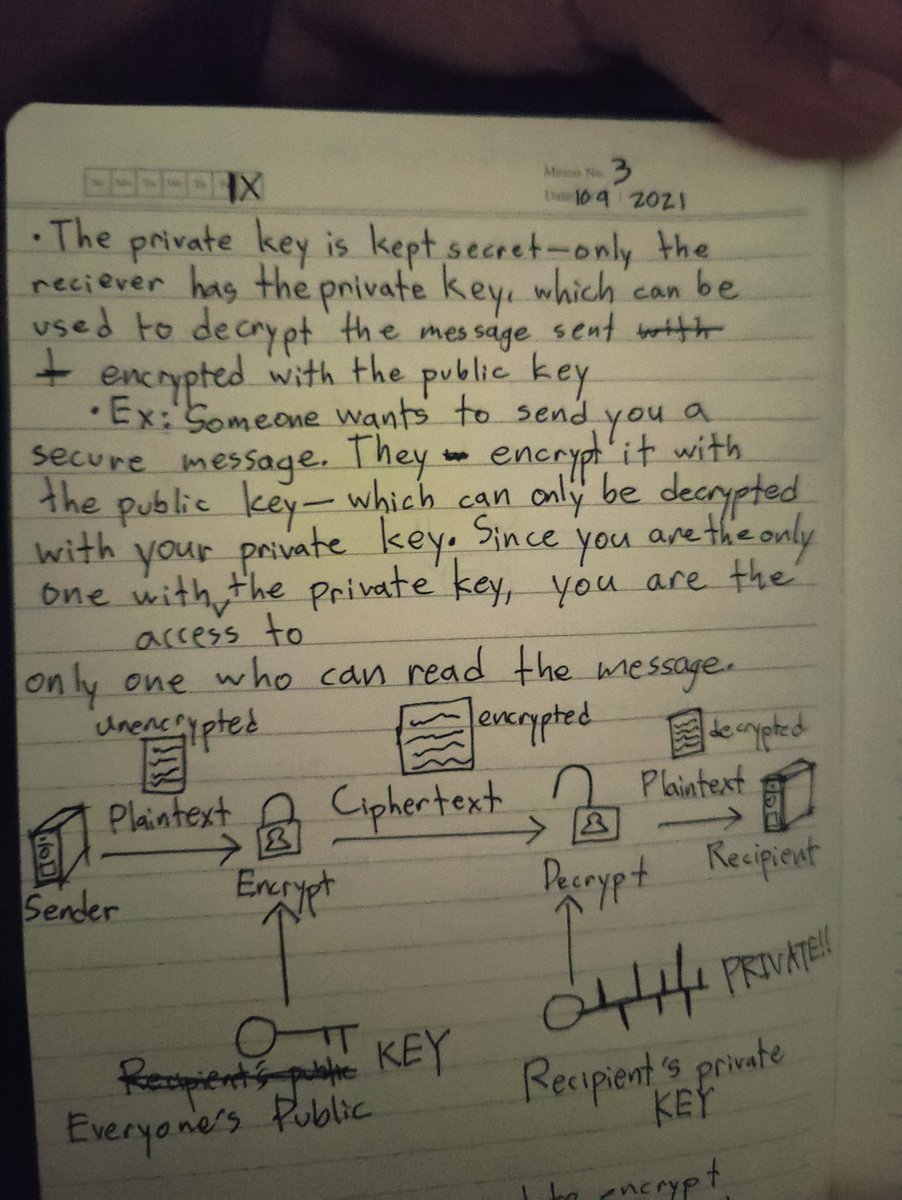 IX
Memo No. 3
Date 10 9 2021
· The private key is kept secret—only the
reciever has the private key, which can be
used to decrypt the message sent with
encrypted with the public key
· Ex: Someone wants to send you a
secure message. They encrypt it with
the public key—which can only be decrypted
with your private key. Since you are the only
one with the private key, you are the
access to
only one who can read the message.
unencrypted
encrypted
decrypted
Plaintext
Ciphertext
Plaintext
Sender
Encrypt
Decrypt
Recipient
PRIVATE!!
KEY
Recipient's public
Everyone's Public
Recipient's private
KEY
to encrypt